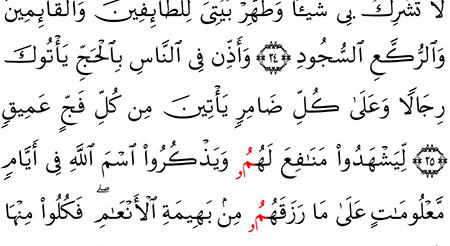 لَا تُشْرِكْ بِى شَيْـًٔا وَطَهِّرْ بَيْتِىَ لِلطَّآئِفِينَ وَالْقَآئِمِينَ
وَالرُّكَّعِ السُّجُودِ ۝٢٤ وَأَذِّن فِى النَّاسِ بِالْحَجِّ يَأْتُوكَ
رِجَالًا وَعَلَىٰ كُلِّ ضَامِرٍ يَأْتِينَ مِن كُلِّ فَجٍّ عَمِيقٍ
۝٢٥ لِّيَشْهَدُوا۟ مَنَـٰفِعَ لَهُمُۥ وَيَذْكُرُوا۟ اسْمَ اللَّهِ فِى أَيَّامٍ
مَّعْلُومَـٰتٍ عَلَىٰ مَا رَزَقَهُمُۥ مِنۢ بَهِيمَةِ الْأَنْعَـٰمِ ۖ فَكُلُوا۟ مِنْهَا